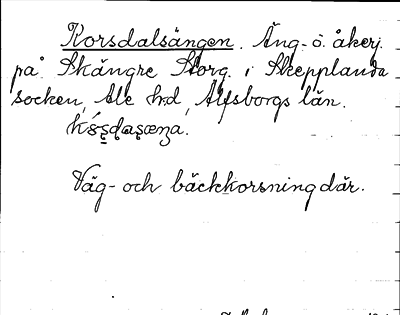 Korsdalsängen. Äng- o. åkerj.
på Skångre Storg. i Skepplanda
socken, Ale hd, Älfsborgs län.
Väg- och bäckkorsning där.